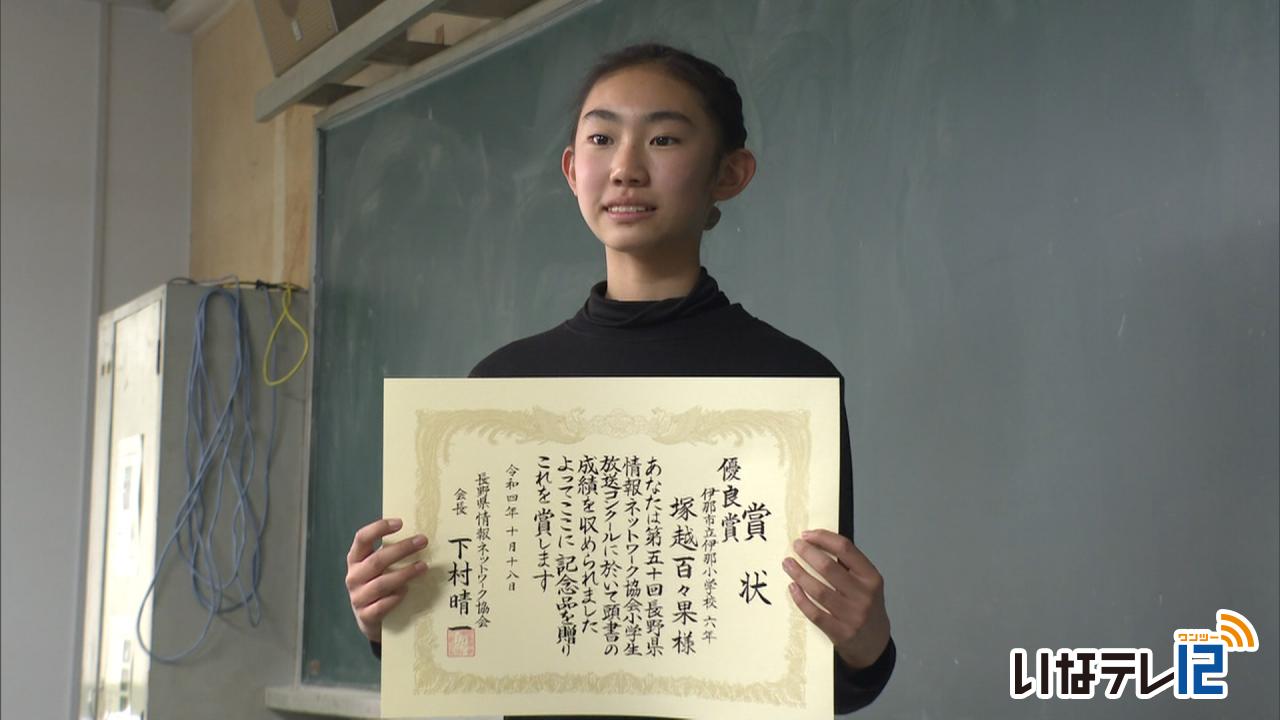 賞状
優良賞
伊那市立伊那小学校 六年
塚越百々果 様
あなたは第五十回長野県
情報ネットワーク協会小学生
放送コンクールに於いて頭書の
成績を収められました
よってここに記念品を贈り
これを賞します
令和四年十月十八日
長野県情報ネットワーク協会
会長 下村晴一
いなテレ12
ワンツー